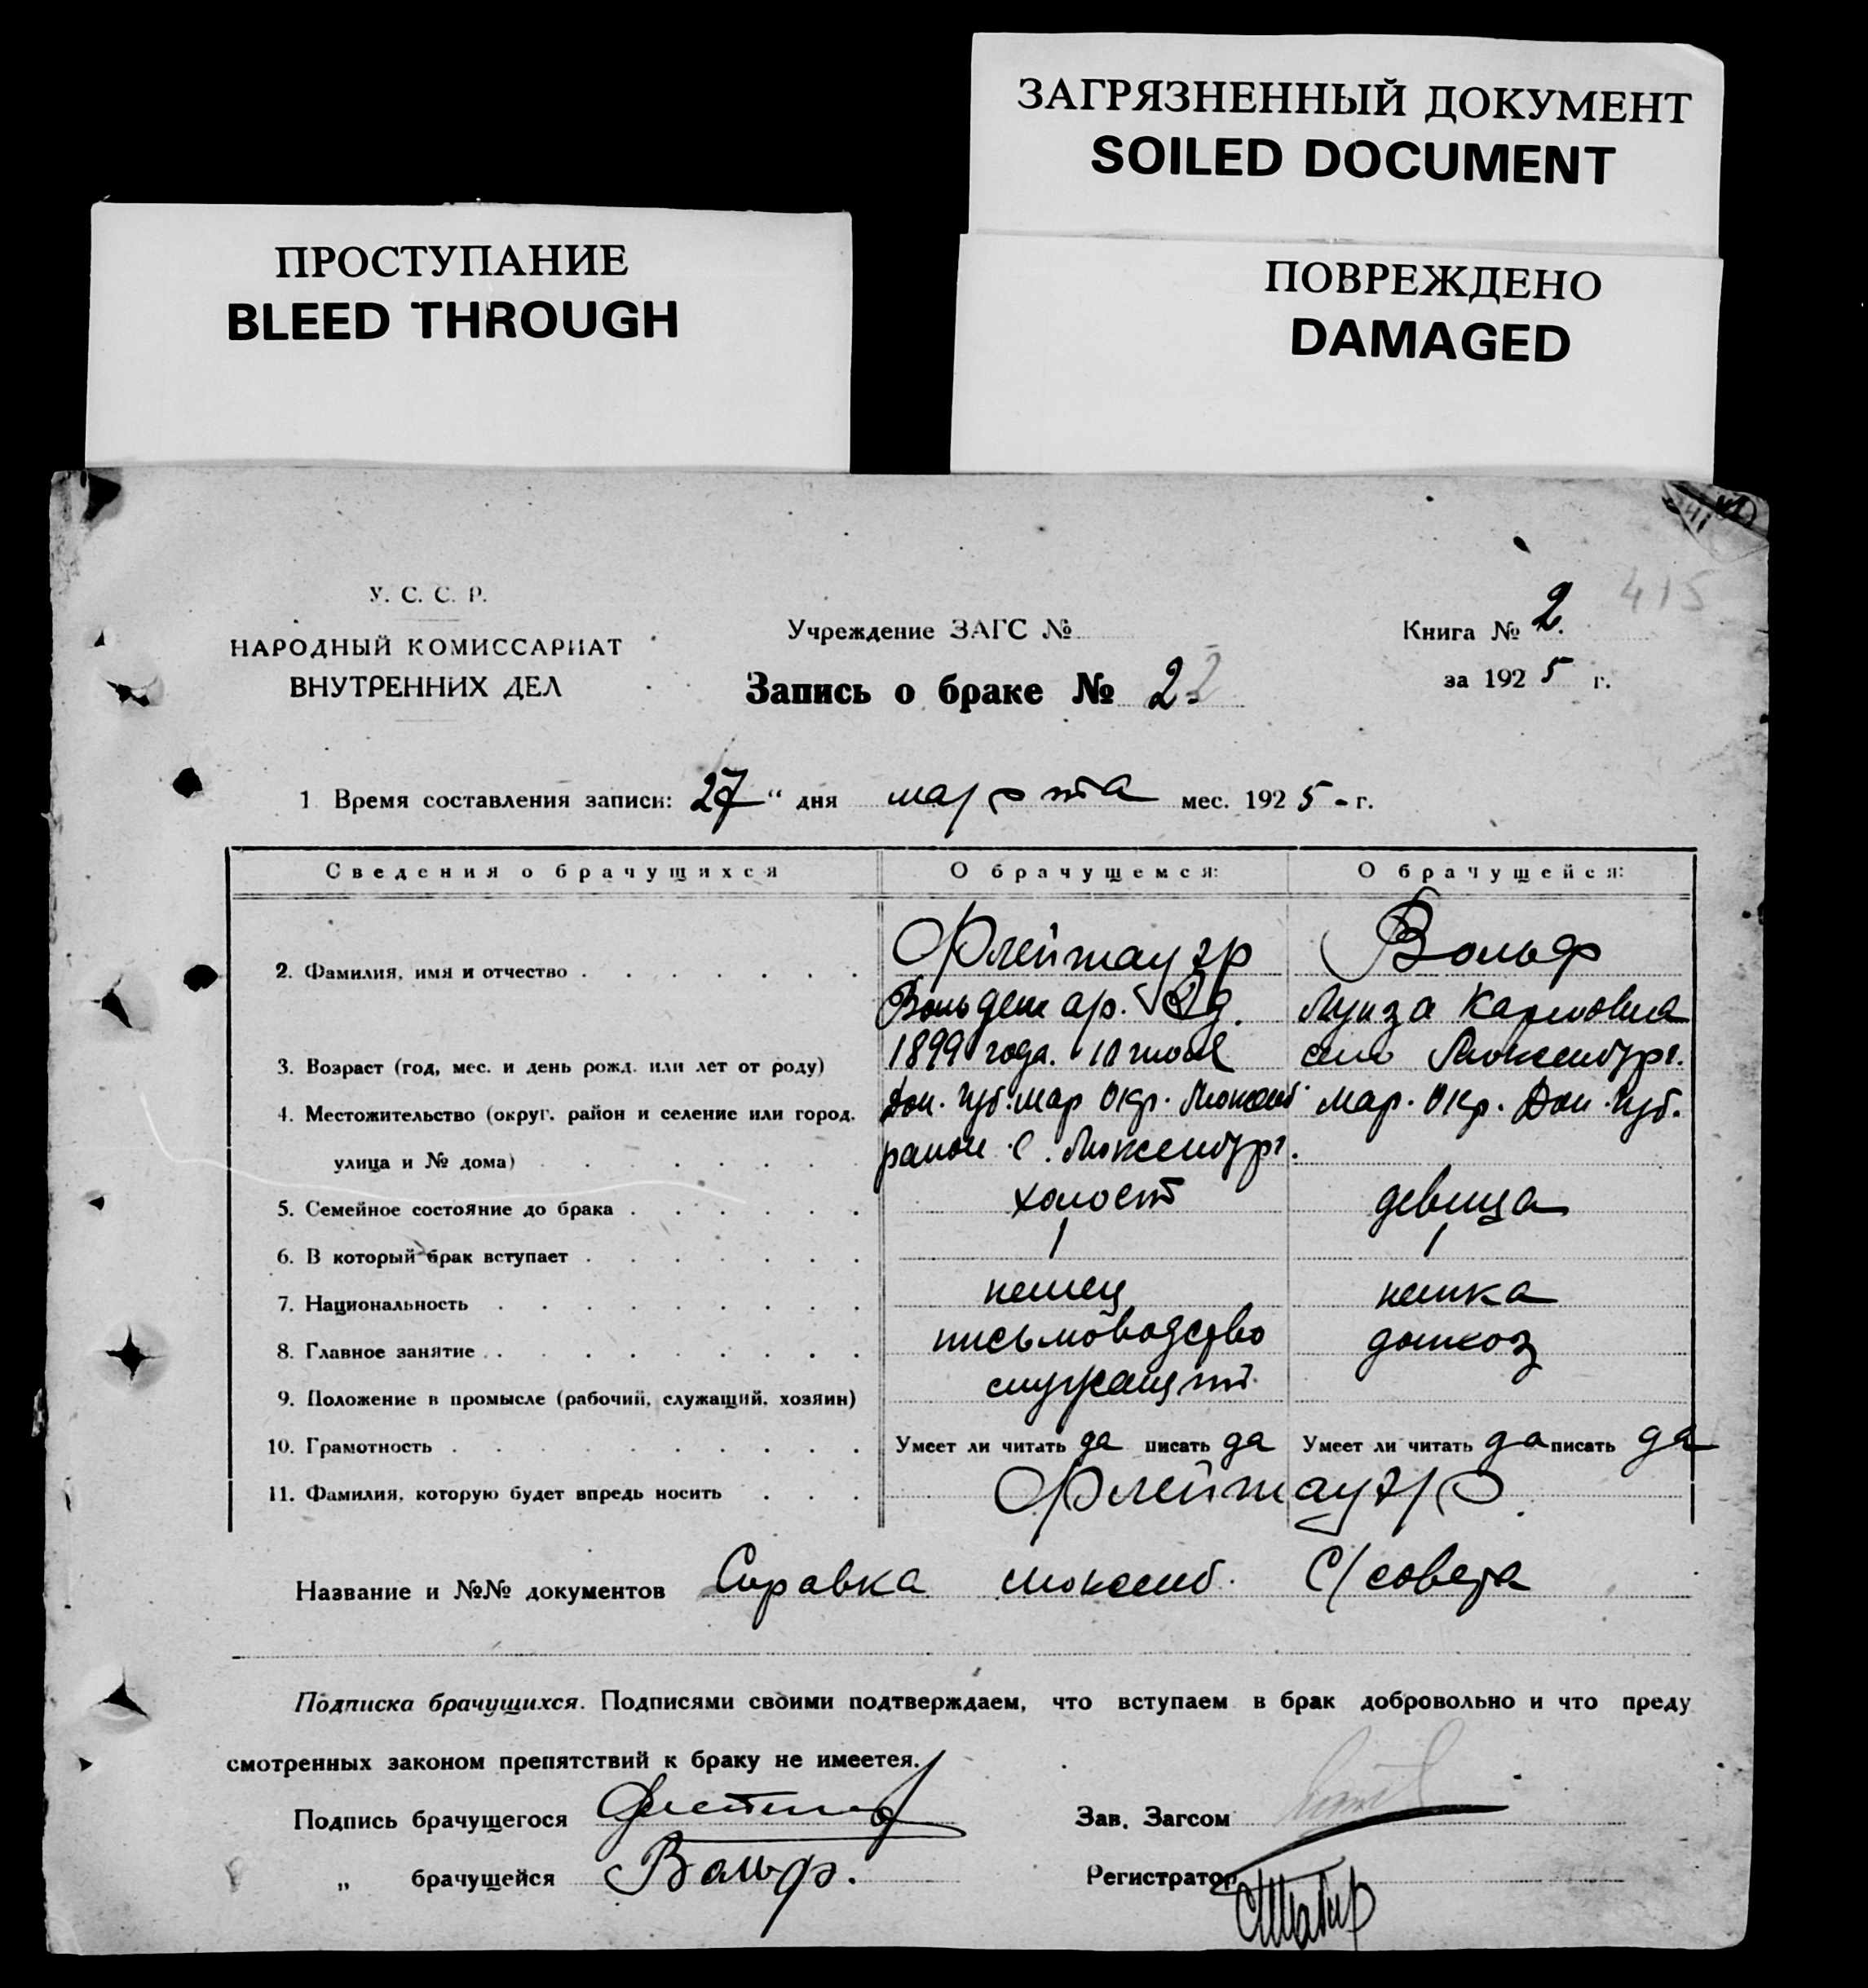 ЗАГРЯЗНЕННЫЙ ДОКУМЕНТ
SOILED DOCUMENT
ПРОСТУПАНИЕ
BLEED THROUGH
ПОВРЕЖДЕНО
DAMAGED
415
У. С. С. Р.
НАРОДНЫЙ КОМИССАРИАТ
ВНУТРЕННИХ ДЕЛ
Учреждение ЗАГС №
Запись о браке № 22
Книга № 2.
за 1925 г.
1 Время составления записи: 27 “ дня марта мес. 1925 - г.
Сведения о брачущихся О брачущемся: О брачущейся:
2. Фамилия, имя и отчество Флейтауэр Вольф
Вольдемар. Эд. Луиза Карловна
3. Возраст (год, мес. и день рожд. или лет от роду) 1899 года. село Люксембург.
4. Местожительство (округ, район и селение или город, Дон. губ. мар Окр. Люксемб. мар. Окр. Дон. губ.
улица и № дома) район с. Люксембург.
5. Семейное состояние до брака холост девица
6. В который брак вступает 1 1
7. Национальность немец немка
8. Главное занятие письмоводство домхоз
9. Положение в промысле (рабочий, служащий, хозяин) служащий
10. Грамотность Умеет ли читать да писать да Умеет ли читать да писать да
11. Фамилия, которую будет впредь носить Флейтауэр.
Название и №№ документов Справка люксемб. С/совета
Подписка брачущихся. Подписями своими подтверждаем, что вступаем в брак добровольно и что преду
смотренных законом препятствий к браку не имеется.
Подпись брачущегося Зав. Загсом
„ брачущейся Вольф. Регистратор